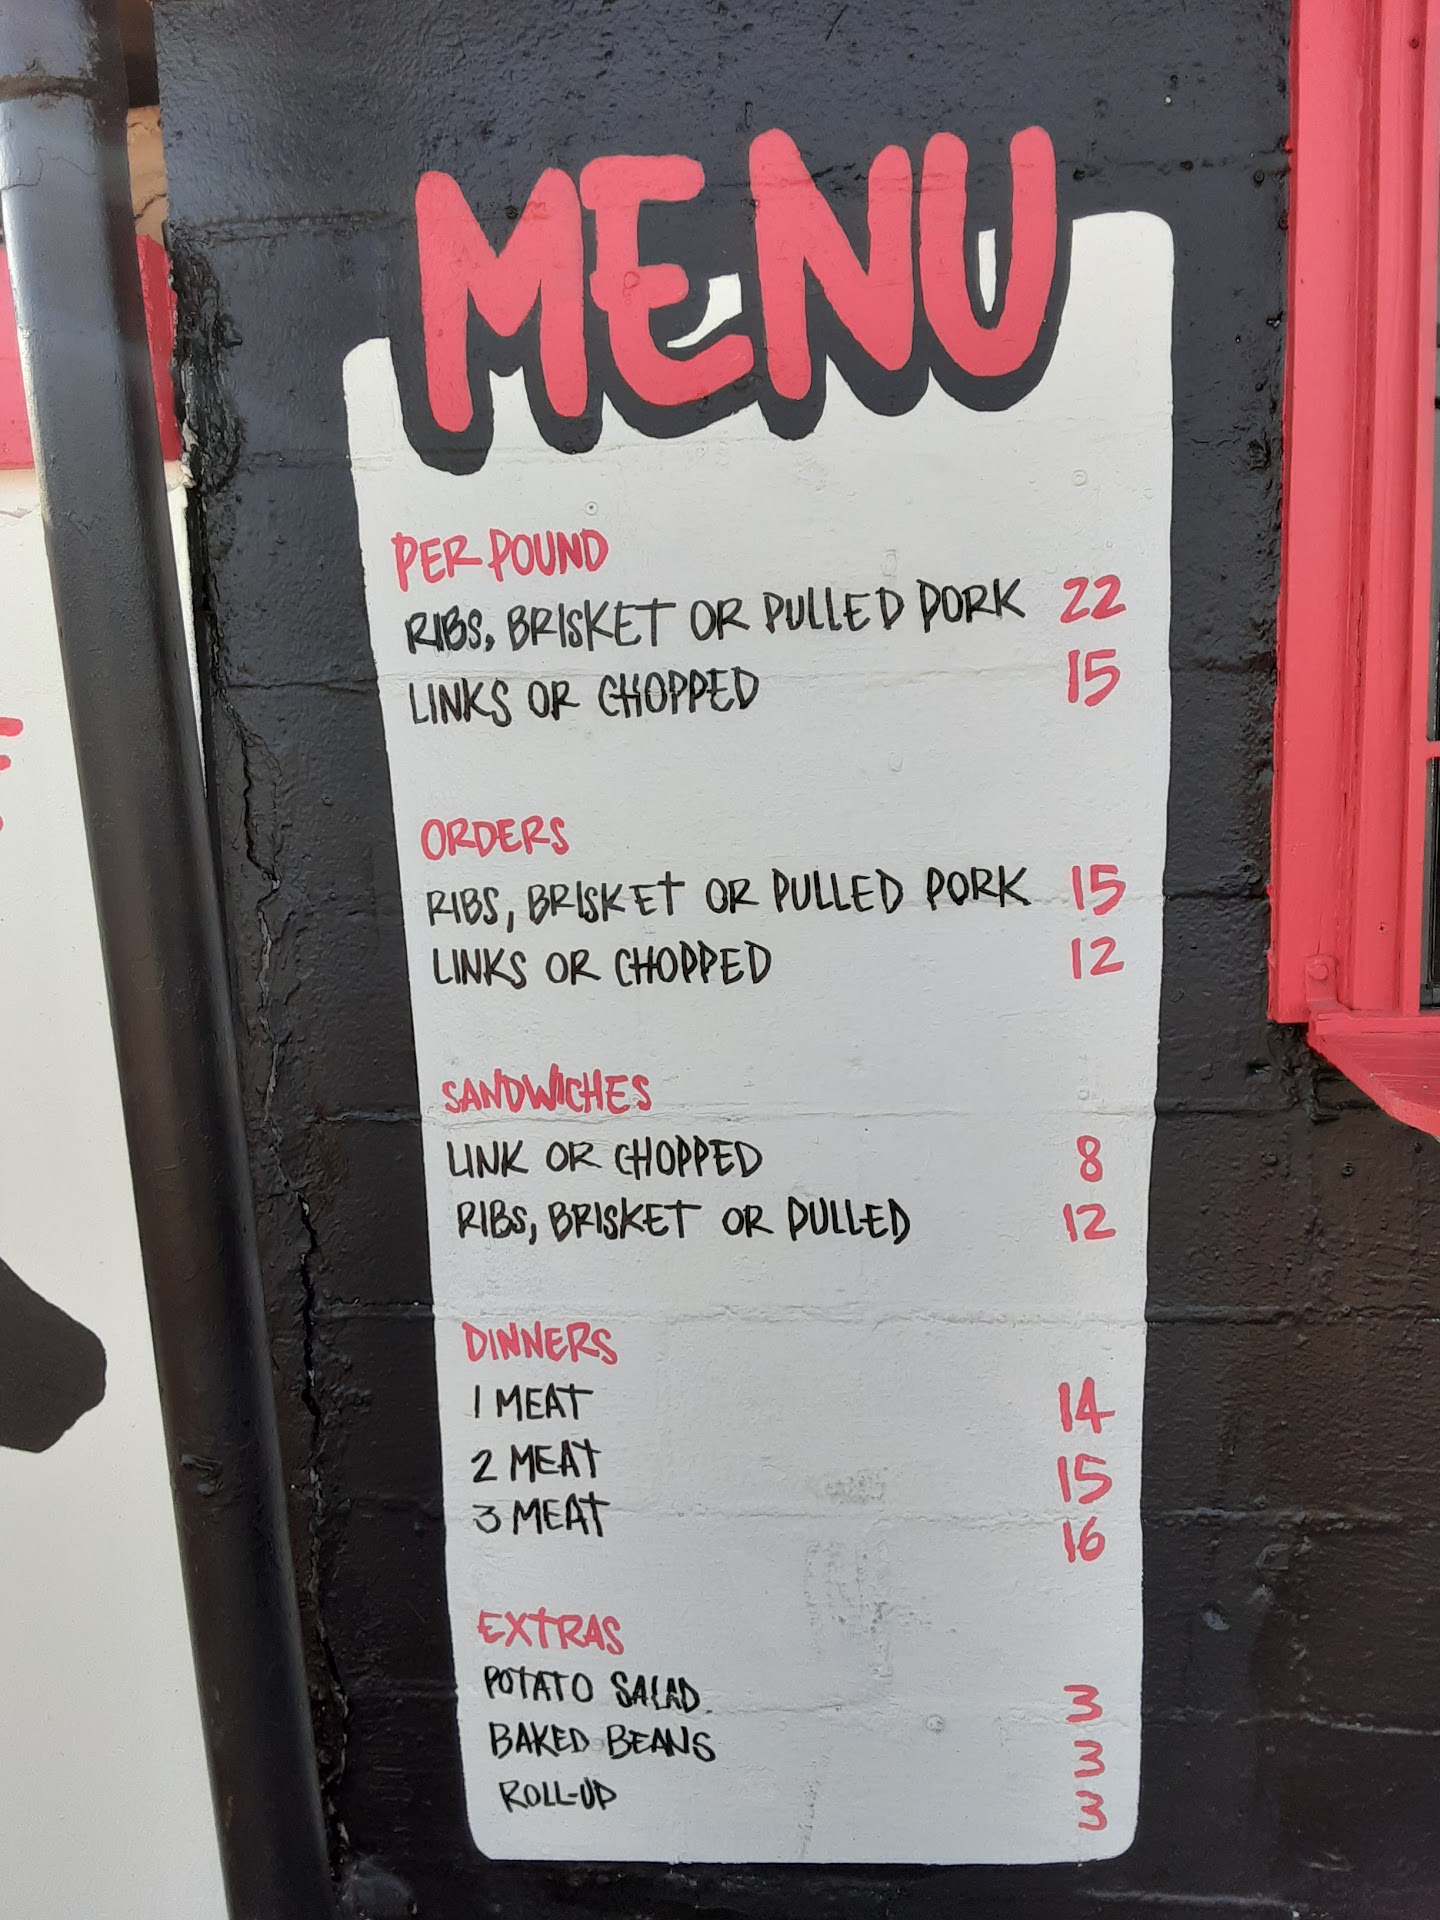 MENU
PER POUND
RIBS, BRISKET OR PULLED PORK 22
LINKS OR CHOPPED 15
ORDERS
RIBS, BRISKET OR PULLED PORK 15
LINKS OR CHOPPED 12
SANDWICHES
LINK OR CHOPPED 8
RIBS, BRISKET OR PULLED 12
DINNERS
1 MEAT 14
2 MEAT 15
3 MEAT 16
EXTRAS
POTATO SALAD 3
BAKED BEANS 3
ROLL-UP 3